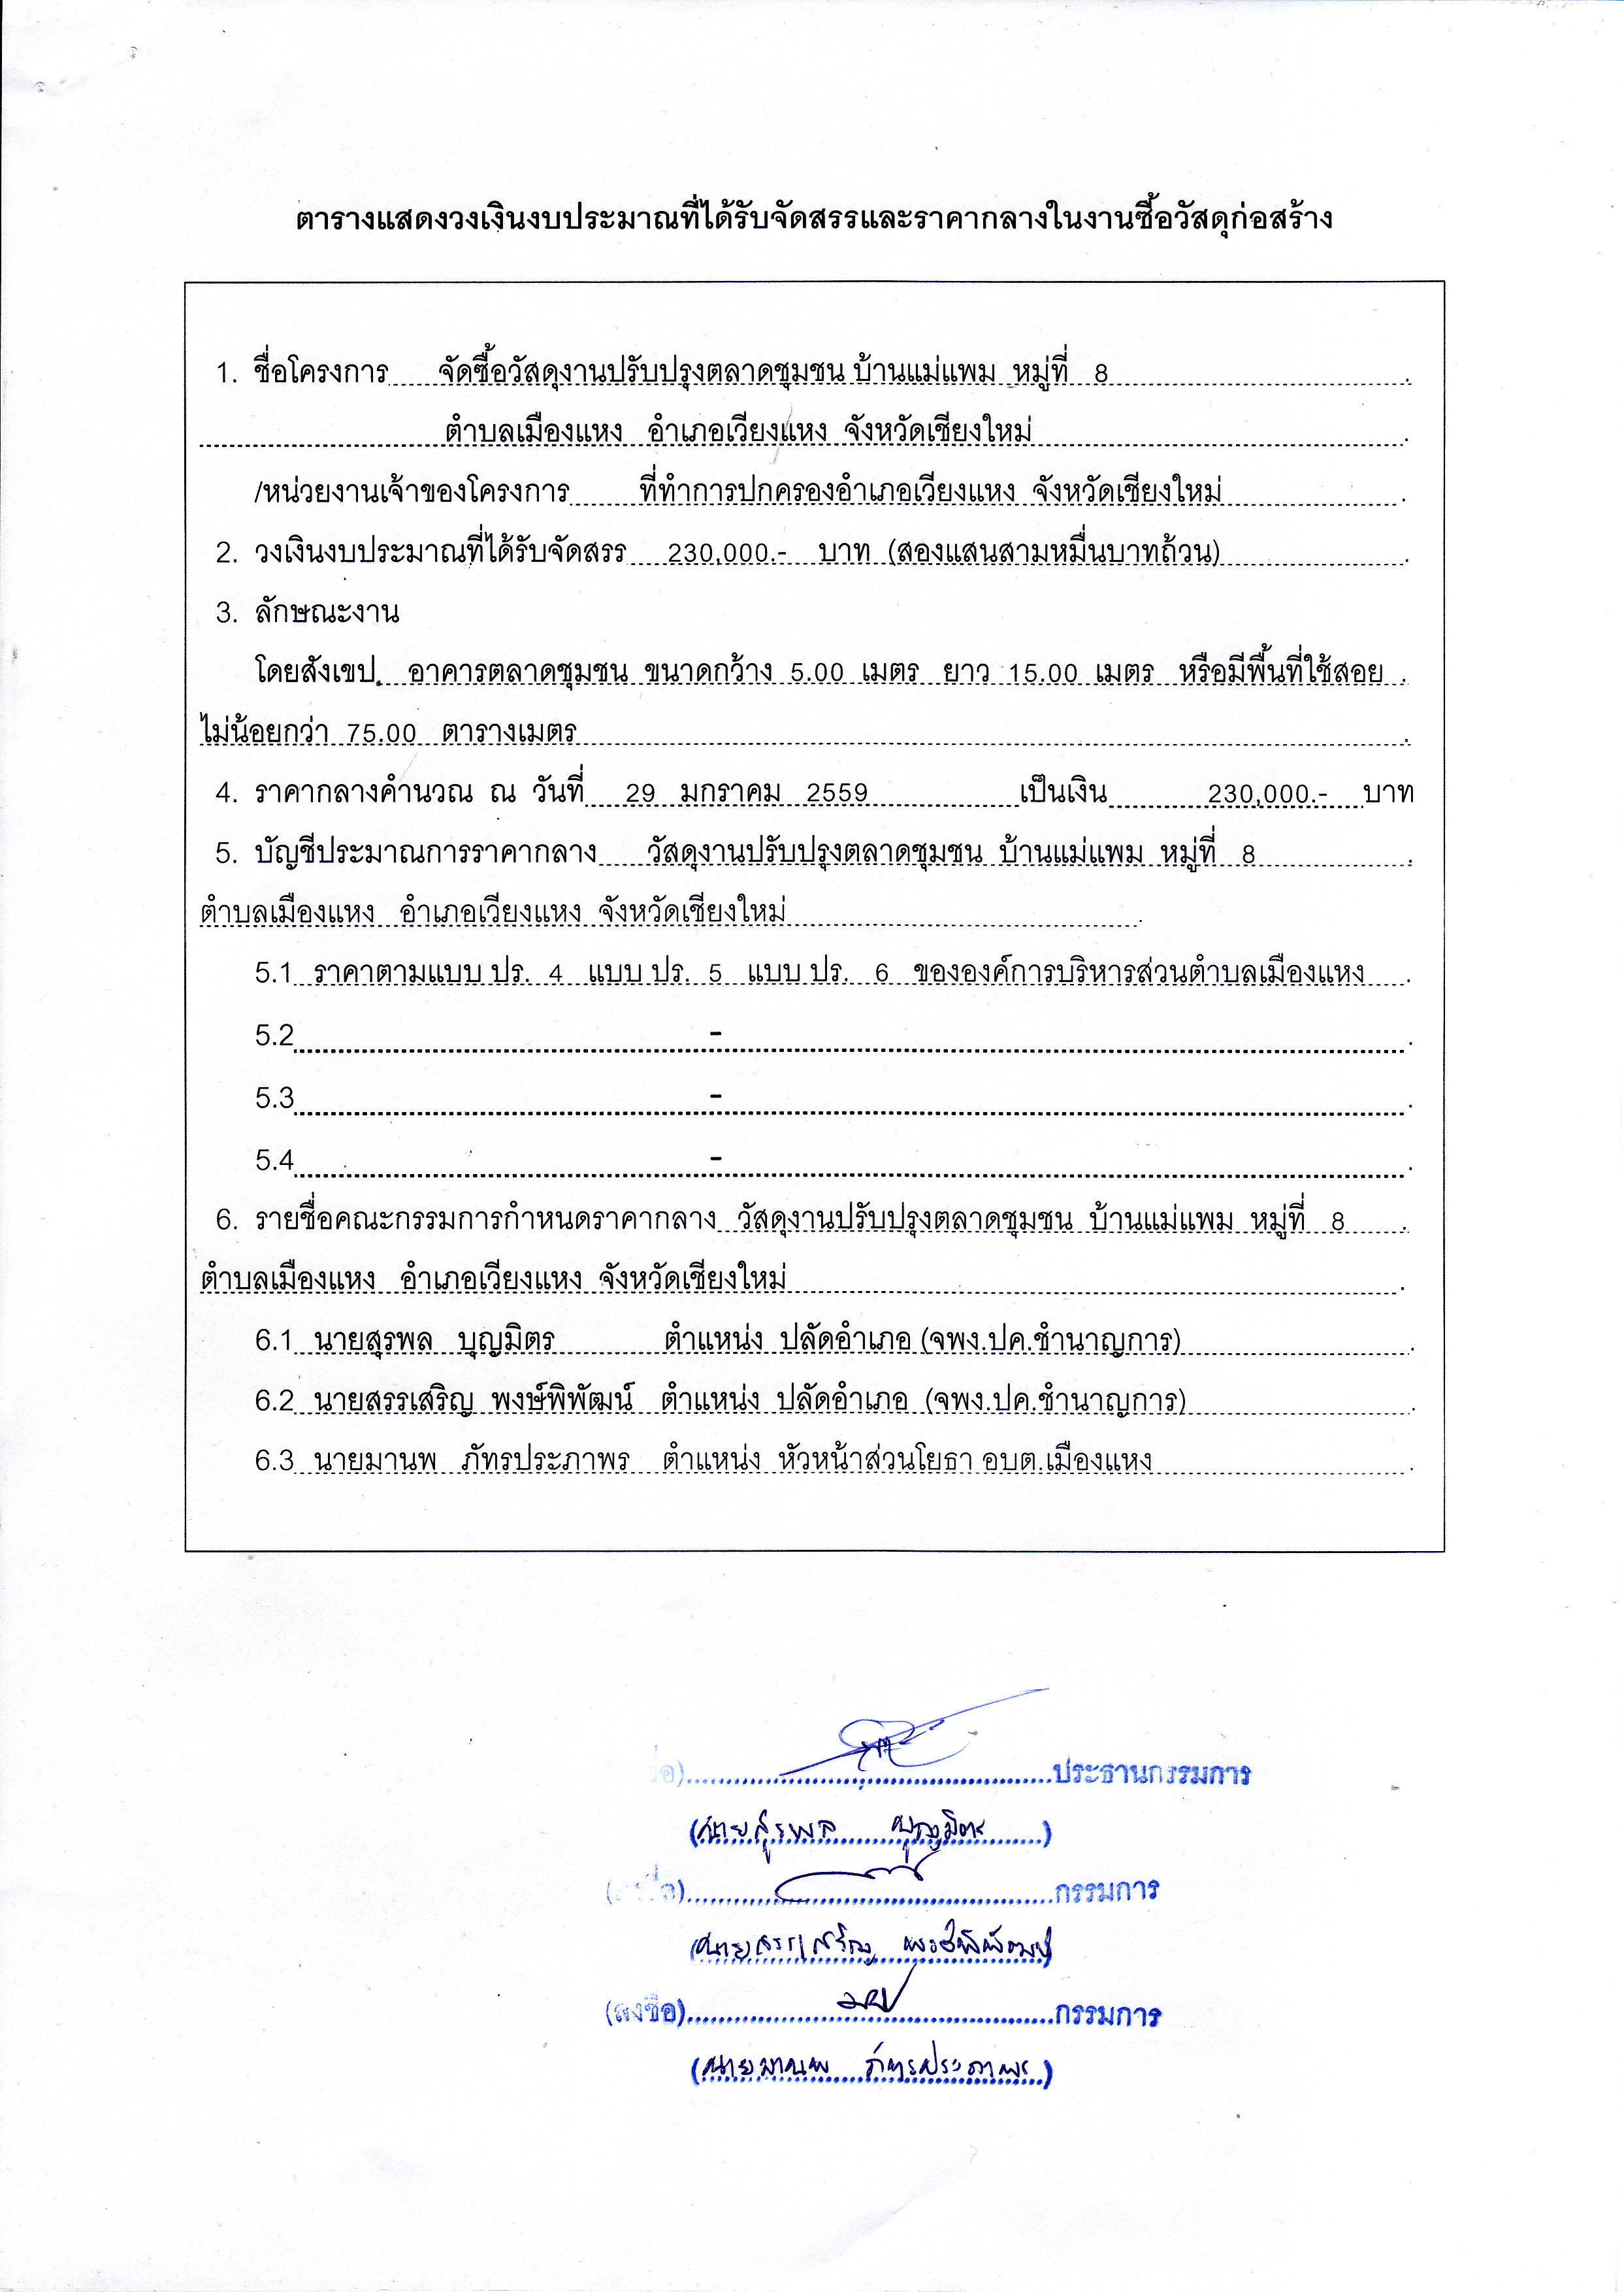 ตารางแสดงวงเงินงบประมาณที่ได้รับจัดสรรและราคากลางในงานซื้อวัสดุก่อสร้าง
1. ชื่อโครงการ จัดซื้อวัสดุงานปรับปรุงตลาดชุมชน บ้านแม่แพม หมู่ที่ 8
ตำบลเมืองแหง อำเภอเวียงแหง จังหวัดเชียงใหม่
/หน่วยงานเจ้าของโครงการ ที่ทำการปกครองอำเภอเวียงแหง จังหวัดเชียงใหม่
2. วงเงินงบประมาณที่ได้รับจัดสรร 230,000.- บาท (สองแสนสามหมื่นบาทถ้วน)
3. ลักษณะงาน
โดยสังเขป อาคารตลาดชุมชน ขนาดกว้าง 5.00 เมตร ยาว 15.00 เมตร หรือมีพื้นที่ใช้สอย
ไม่น้อยกว่า 75.00 ตารางเมตร
4. ราคากลางคำนวณ ณ วันที่ 29 มกราคม 2559 เป็นเงิน 230,000.- บาท
5. บัญชีประมาณการราคากลาง วัสดุงานปรับปรุงตลาดชุมชน บ้านแม่แพม หมู่ที่ 8
ตำบลเมืองแหง อำเภอเวียงแหง จังหวัดเชียงใหม่
5.1 ราคาตามแบบ ปร. 4 แบบ ปร. 5 แบบ ปร. 6 ขององค์การบริหารส่วนตำบลเมืองแหง
5.2 -
5.3 -
5.4 -
6. รายชื่อคณะกรรมการกำหนดราคากลาง วัสดุงานปรับปรุงตลาดชุมชน บ้านแม่แพม หมู่ที่ 8
ตำบลเมืองแหง อำเภอเวียงแหง จังหวัดเชียงใหม่
6.1 นายสุรพล บุญมิตร ตำแหน่ง ปลัดอำเภอ (จพง.ปค.ชำนาญการ)
6.2 นายสรรเสริญ พงษ์พิพัฒน์ ตำแหน่ง ปลัดอำเภอ (จพง.ปค.ชำนาญการ)
6.3 นายมานพ ภัทรประภาพร ตำแหน่ง หัวหน้าส่วนโยธา อบต.เมืองแหง
ประธานกรรมการ
(นายสุรพล บุญมิตร)
(ลงชื่อ) กรรมการ
(นายสรรเสริญ พงษ์พิพัฒน์)
(ลงชื่อ) กรรมการ
(นายมานพ ภัทรประภาพร)